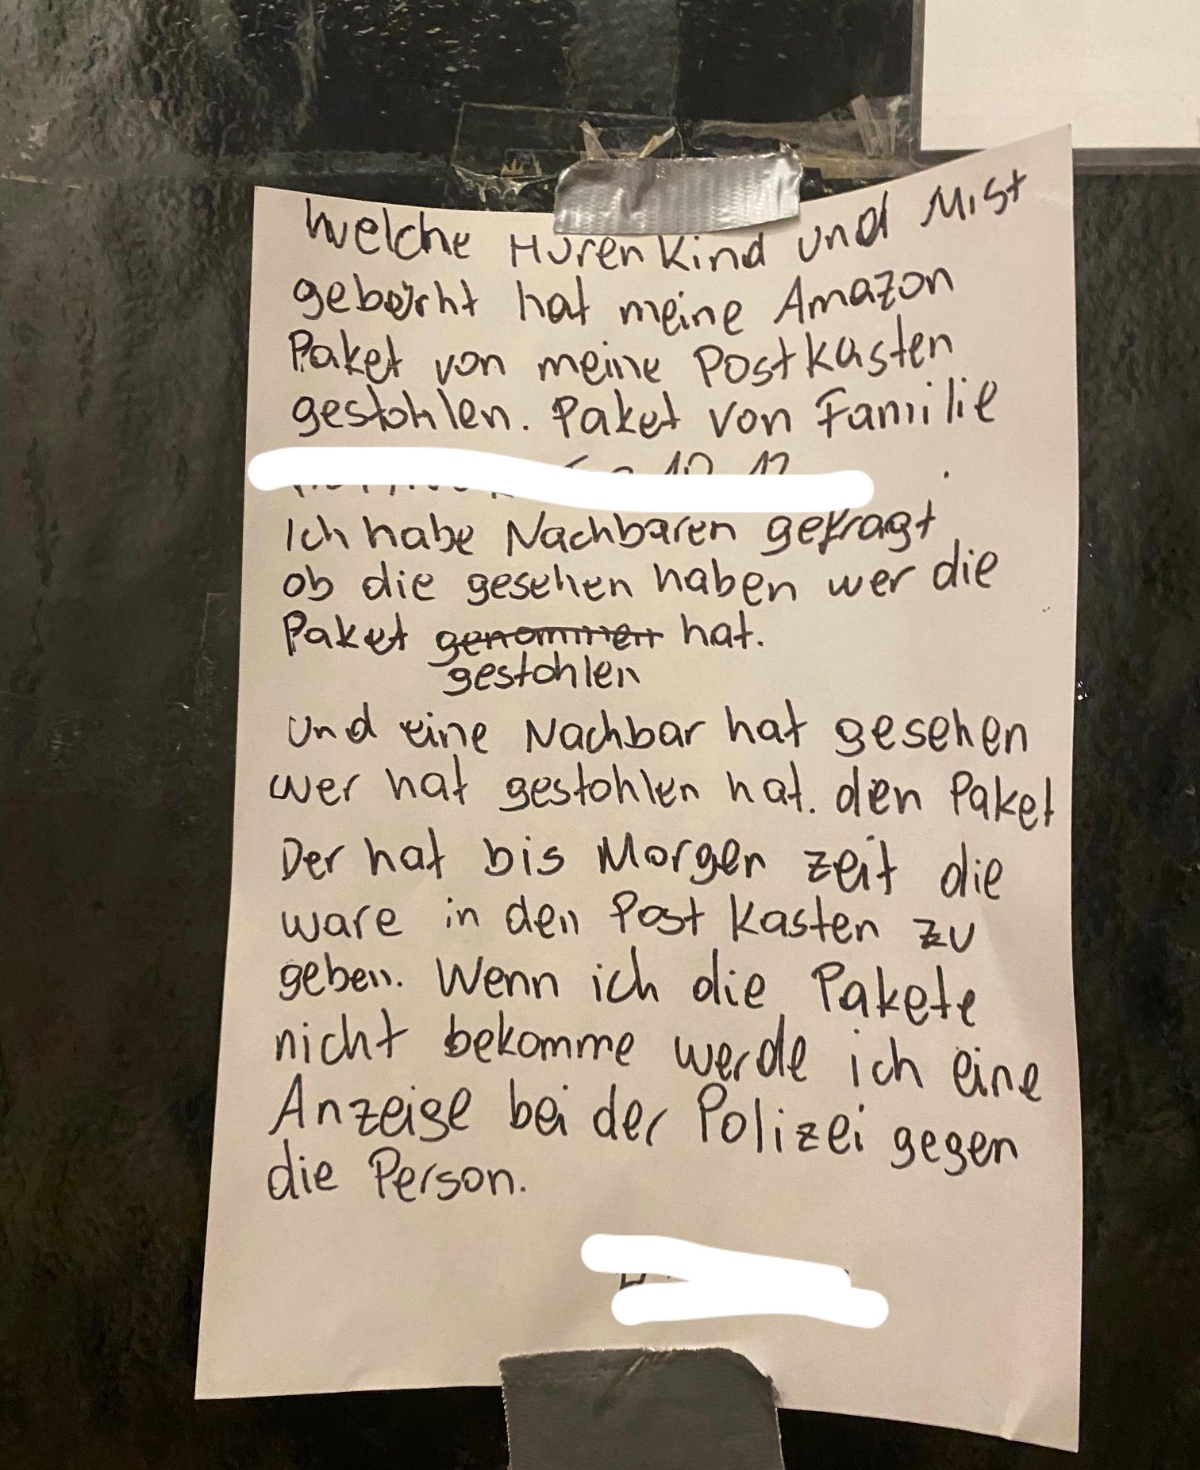 Welche Hurenkind und Mist
geburht hat meine Amazon
Paket von meine Postkasten
gestohlen. Paket von Familie
Ich habe Nachbaren gefragt
ob die gesehen haben wer die
Paket genommen hat.
gestohlen
Und eine Nachbar hat gesehen
wer hat gestohlen hat. den Paket
Der hat bis Morgen zeit die
ware in den Post kasten zu
geben. Wenn ich die Pakete
nicht bekomme werde ich eine
Anzeige bei der Polizei gegen
die Person.